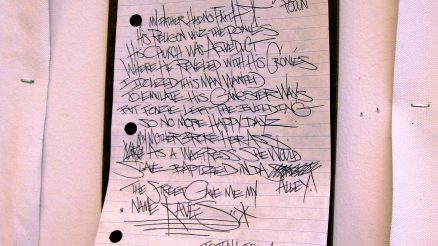 MY FATHER HAD NO FAITH
HIS RELIGION WUZ THE PONIES
HIS CHURCH WAS AQUEDUCT
WHERE HE REVELED WITH HIS CRONIES
I IDOLIZED THIS MAN WANTED
TO EMULATE HIS GANGSTER WAYS
BUT FONZIE LEFT THE BUILDING
SO NO MORE HAPPY DAYZ
MY MOTHER BROKE HER ASS
AS A WAITRESS SHE WOULD
SLAVE BAPTIZED IN DA
ALLEY!
THE STREET GAVE ME MY
NAME